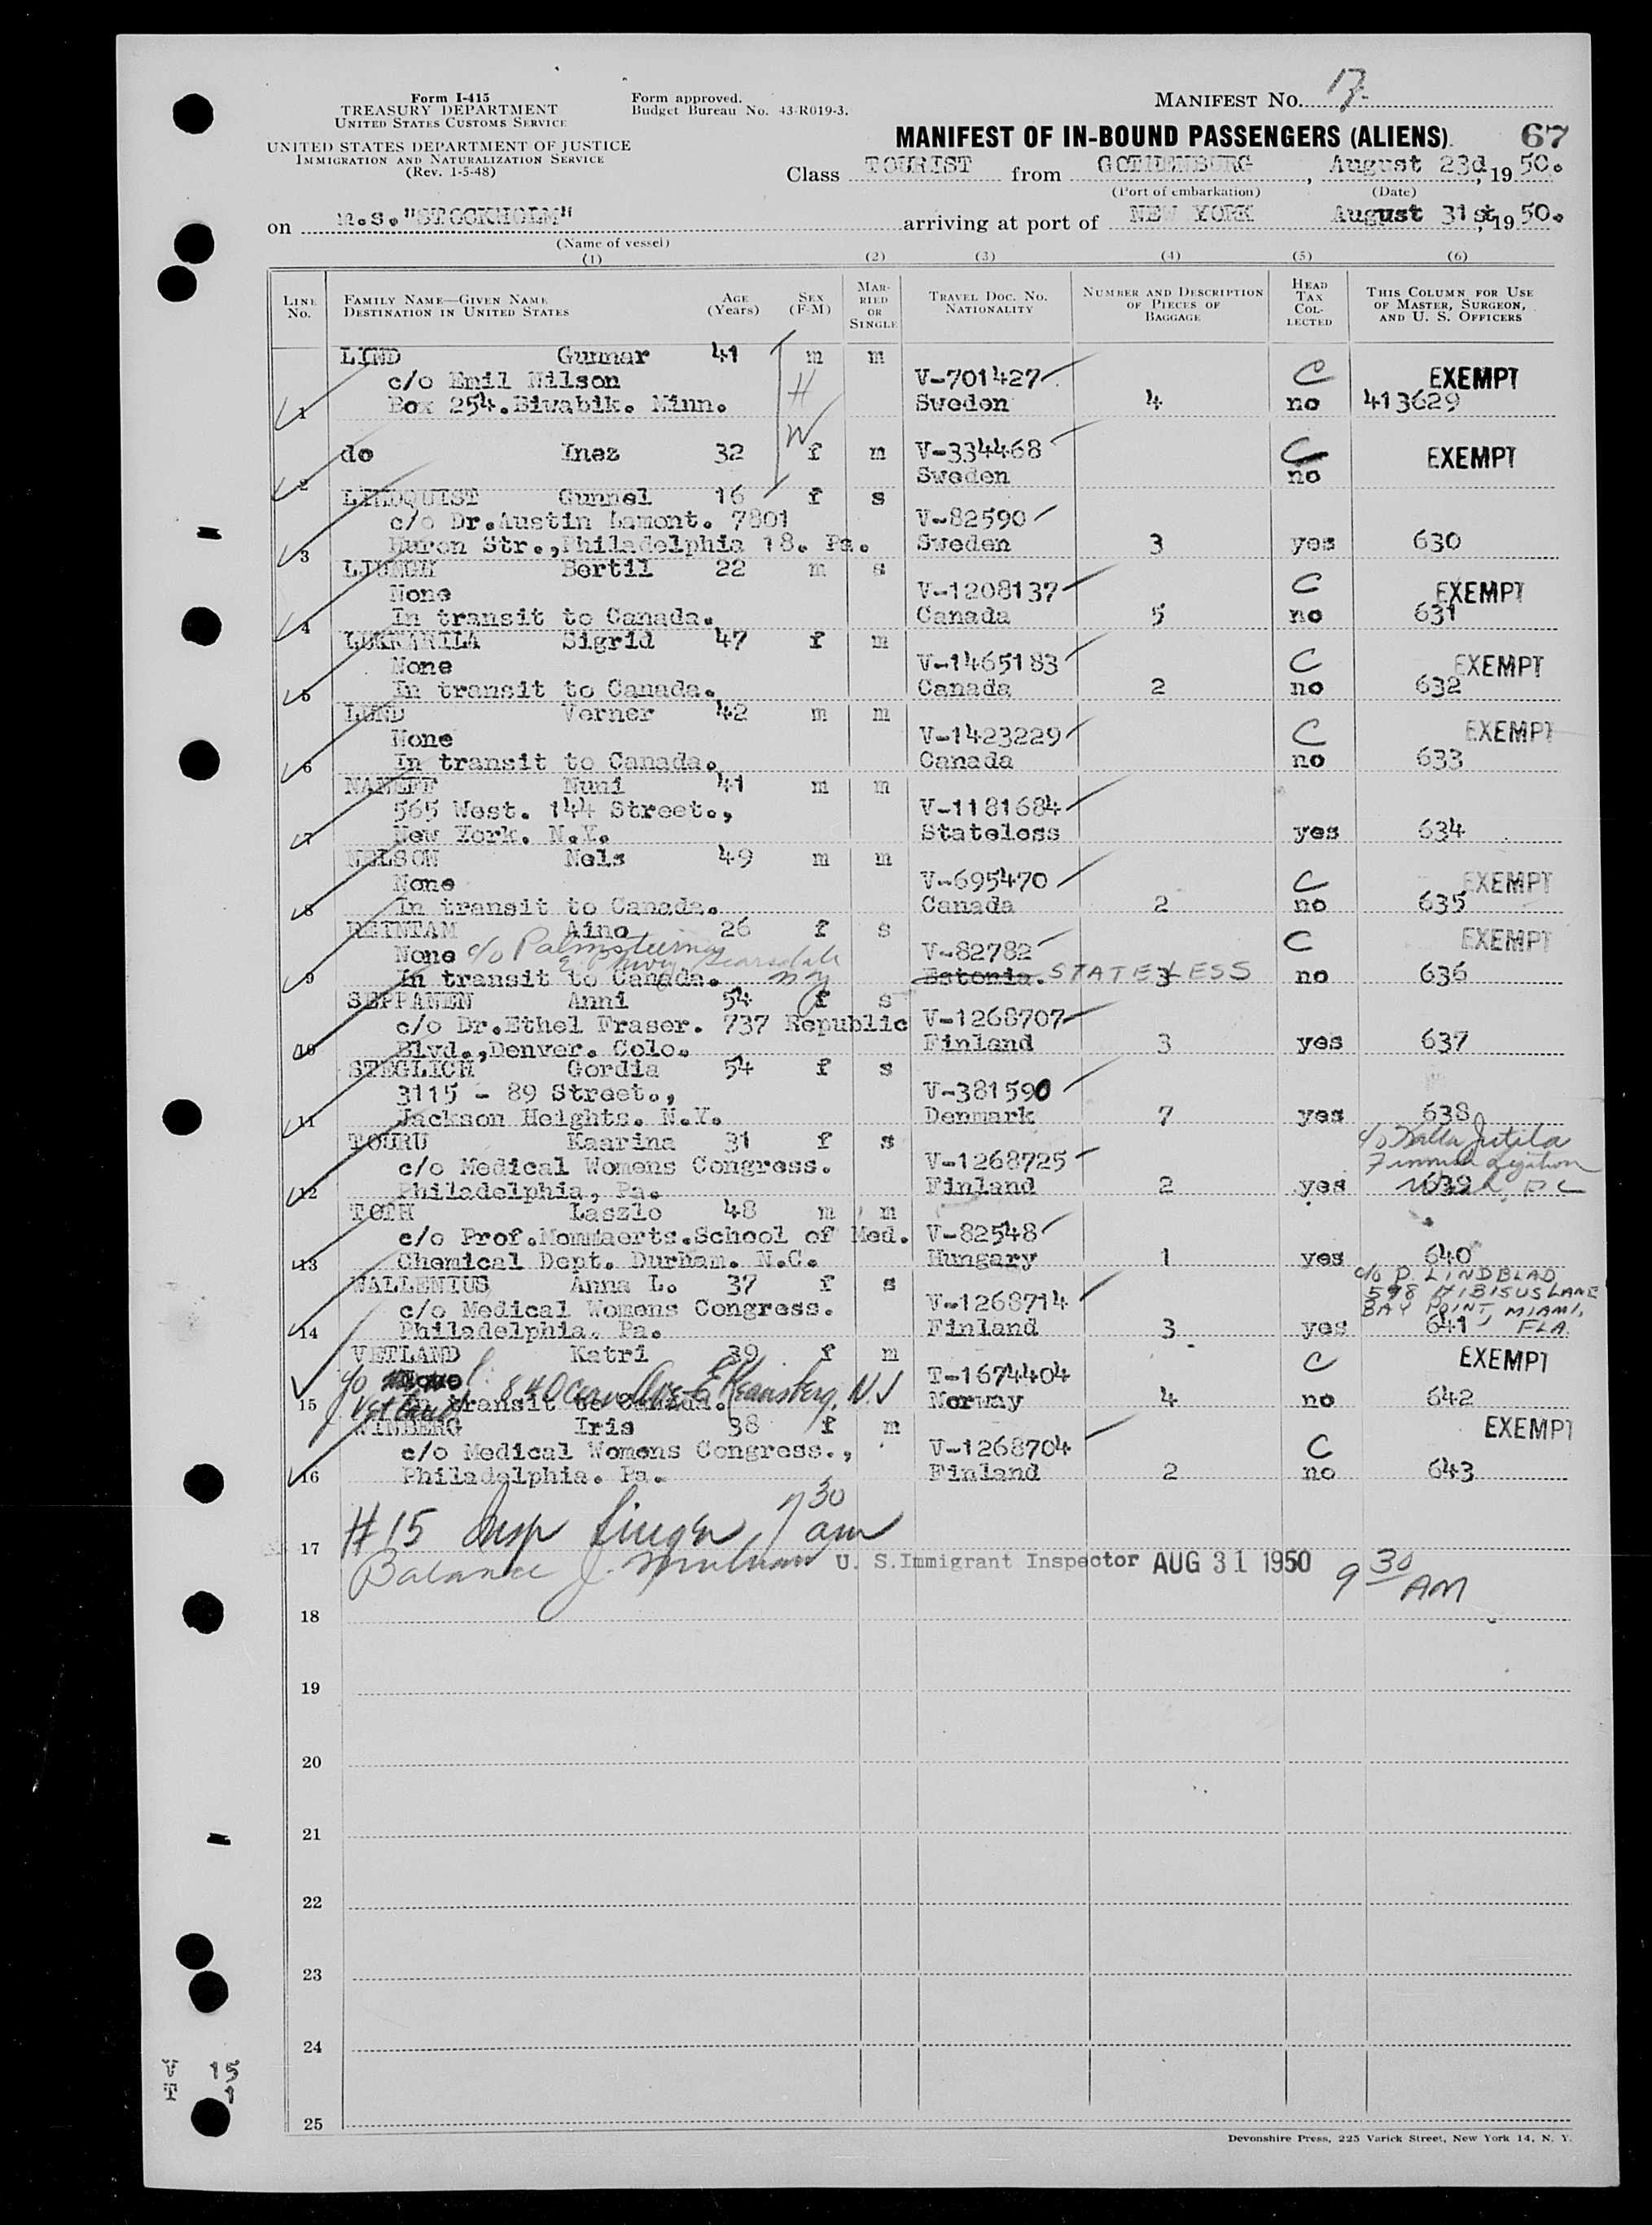 Form I-415
TREASURY DEPARTMENT
UNITED STATES CUSTOMS SERVICE
UNITED STATES DEPARTMENT OF JUSTICE
IMMIGRATION AND NATURALIZATION SERVICE
(Rev. 1-5-48)
Form approved.
Budget Bureau No. 43-R019-3.
MANIFEST NO.
MANIFEST OF IN-BOUND PASSENGERS (ALIENS) 67
Class TOURIST from GOTHENBURG, August 23d, 1950.
(Port of embarkation) (Date)
on M.S."STOCKHOLM" arriving at port of NEW YORK August 31st, 1950.
(Name of vessel)
(1) (2) (3) (4) (5) (6)
LINE No. FAMILY NAME—GIVEN NAME DESTINATION IN UNITED STATES AGE (Years) SEX (F-M) MARRIED OR SINGLE TRAVEL DOC. NO. NATIONALITY NUMBER AND DESCRIPTION OF PIECES OF BAGGAGE HEAD TAX COLLECTED THIS COLUMN FOR USE OF MASTER, SURGEON, AND U. S. OFFICERS
LIND Gunnar 41 m m
c/o Emil Nilson H V-701427 C EXEMPT
1 Box 254. Biwabik. Minn. Sweden 4 no 413629
W
do Inez 32 f m V-334468 C EXEMPT
2 Sweden no
LINDQUIST Gunnel 16 f s
c/o Dr.Austin Lamont. 7801 V-82590
3 Huron Str.,Philadelphia 18. Pa. Sweden 3 yes 630
Bertil 22 m s
None V-1208137 C EXEMPT
4 In transit to Canada. Canada 5 no 631
Sigrid 47 f m
None V-1465183 C EXEMPT
5 In transit to Canada. Canada 2 no 632
LUND Verner 42 m m
None V-1423229 C EXEMPT
6 In transit to Canada. Canada no 633
NAMEFF Nuni 41 m m
565 West. 144 Street., V-1181684
7 New York. N.Y. Stateless yes 634
NELSON Nels 49 m m
None V-695470 C EXEMPT
8 In transit to Canada. Canada 2 no 635
REINTAM Aino 26 f s
None c/o V-82782 C EXEMPT
Scarsdale
9 In transit to Canada. NY Estonia. STATELESS 3 no 636
SEPPANEN Anni 54 f s
c/o Dr.Ethel Fraser. 737 Republic V-1268707
10 Blvd.,Denver. Colo. Finland 3 yes 637
STEGLICH Gordia 54 f s
3115 - 89 Street., V-381590
11 Jackson Heights. N.Y. Denmark 7 yes 638
TOURU Kaarina 31 f s c/o Kalle Jutila
c/o Medical Womens Congress. V-1268725 Finnish Legation
12 Philadelphia, Pa. Finland 2 yes 639 Wash, DC
TOTH Laszlo 48 m m
c/o Prof.Mommaerts.School of Med. V-82548
13 Chemical Dept. Durham. N.C. Hungary 1 yes 640
WALLENIUS Anna L. 37 f s c/o P. LINDBLAD
598 HIBISUS LANE
c/o Medical Womens Congress. V-1268714 BAY POINT, MIAMI,
14 Philadelphia. Pa. Finland 3 yes 641 FLA.
VETLAND Katri 39 f m
c/o None T-1674404 C EXEMPT
Vetland 840 Ocean Ave E Keansburg, N.J
15 In transit to Canada. Norway 4 no 642
WINBERG Iris 38 f m EXEMPT
c/o Medical Womens Congress., V-1268704 C
16 Philadelphia. Pa. Finland 2 no 643
#15 Insp 7 30 am
17
Balance J. U. S. Immigrant Inspector AUG 31 1950 9 30 AM
18
19
20
21
22
23
24
V 15
T 1
25
Devonshire Press, 225 Varick Street, New York 14, N. Y.